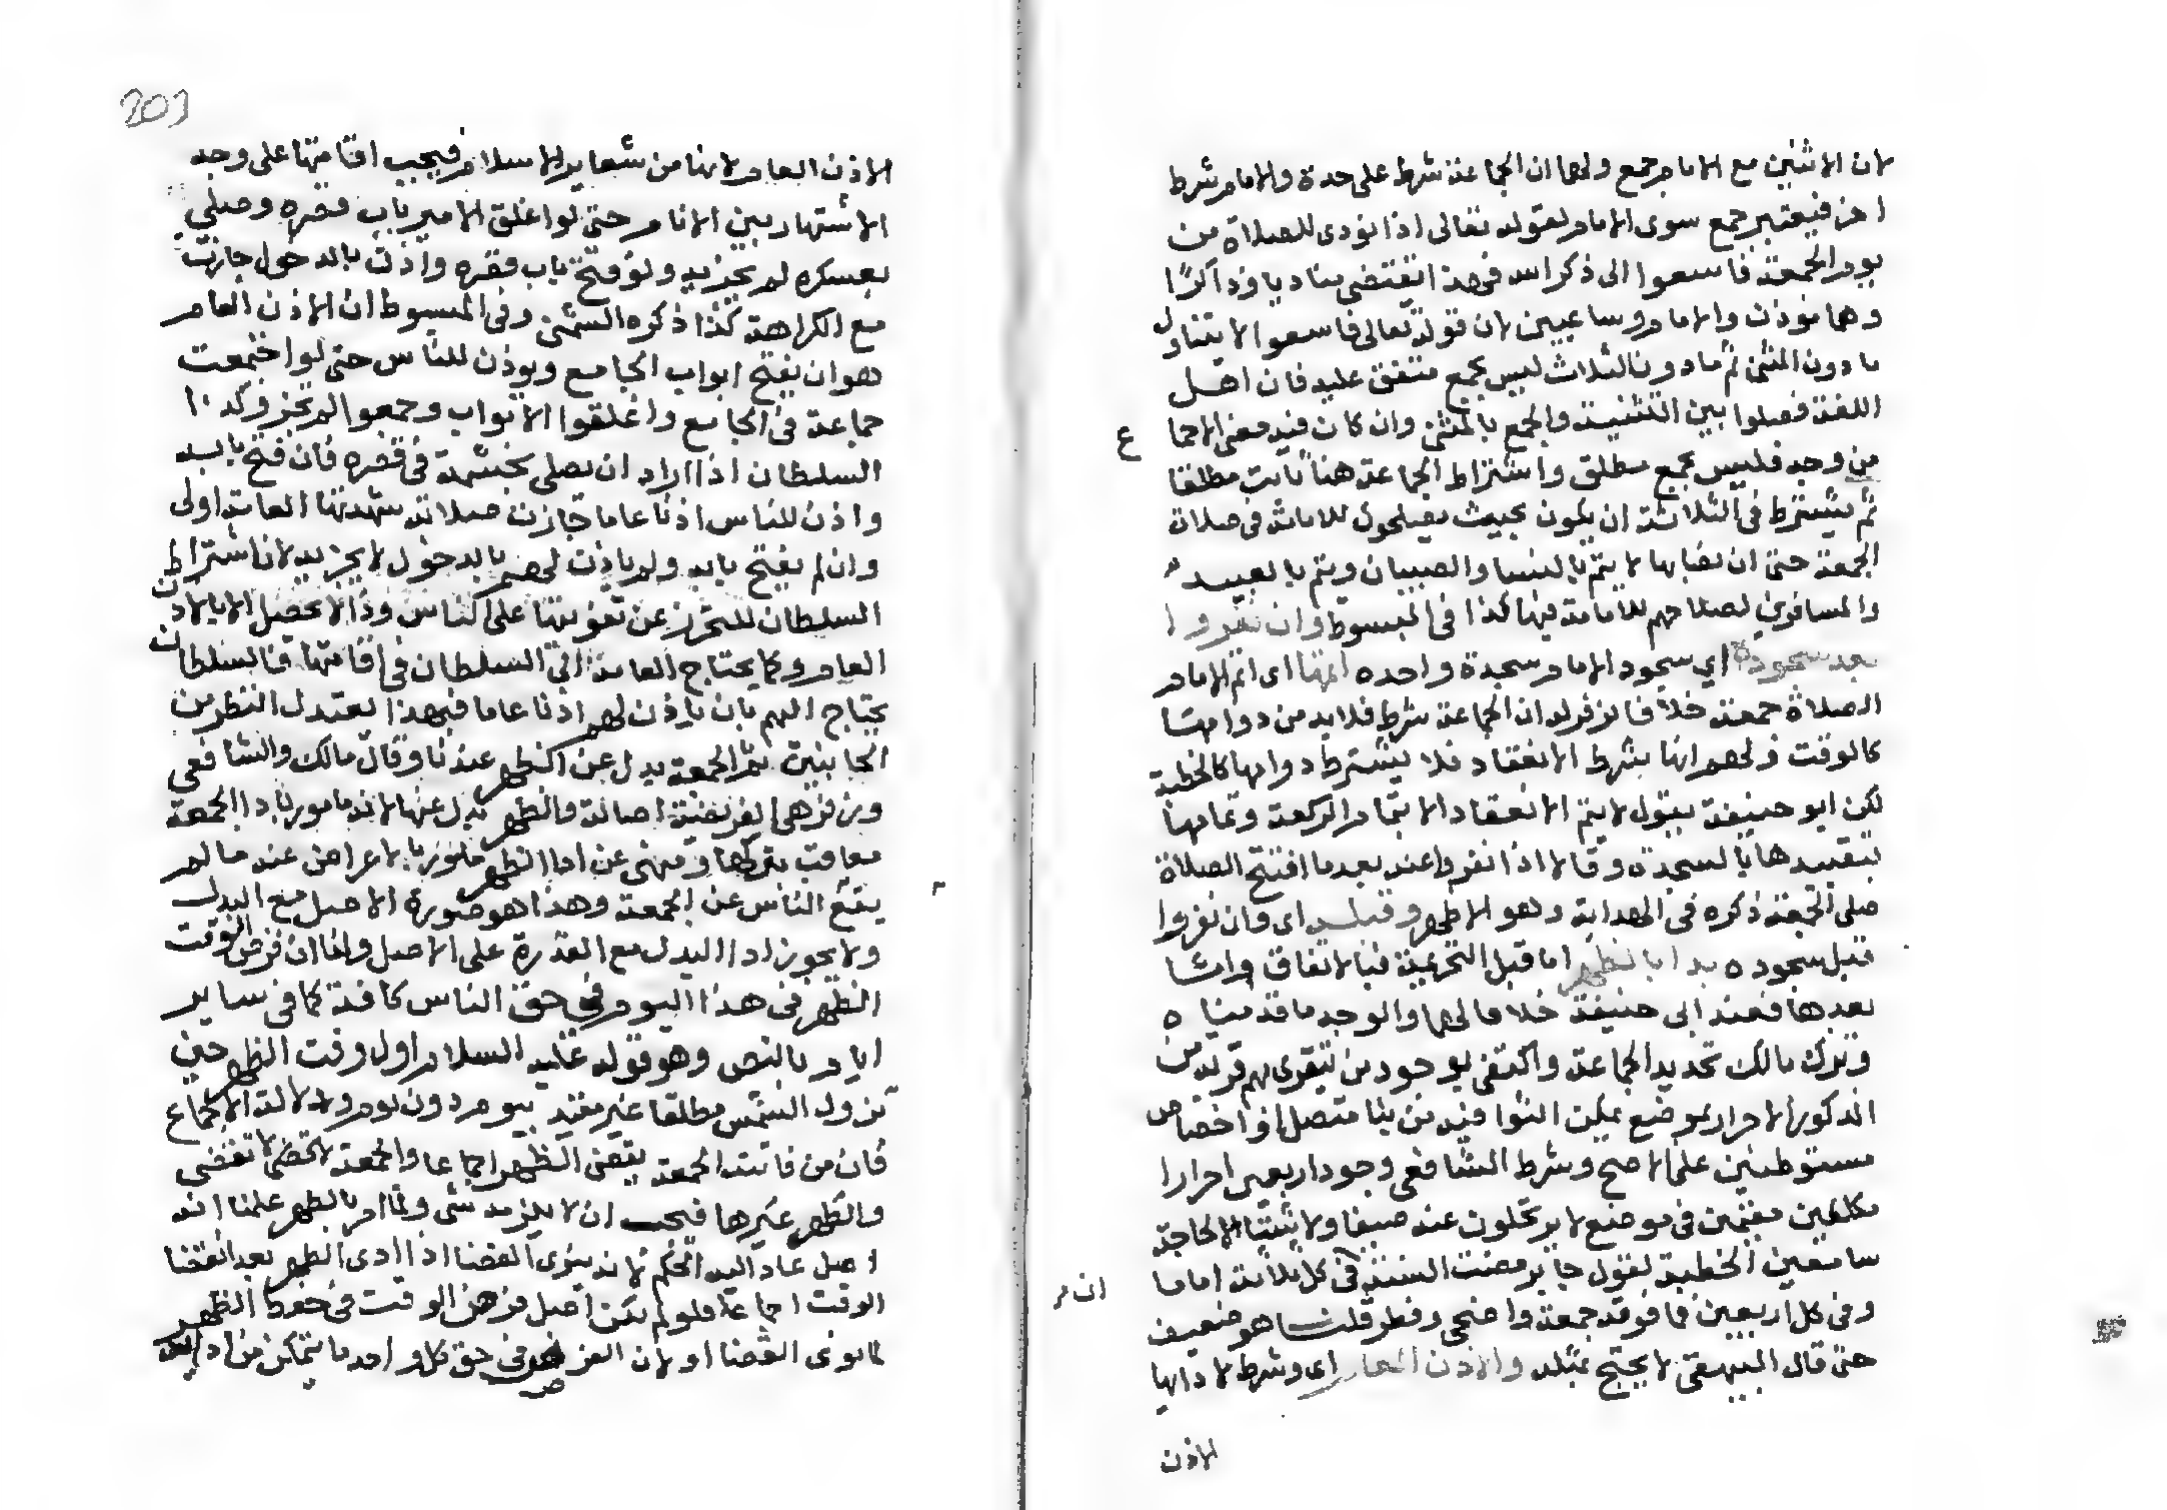 لان الاثنين مع الامام جمع ولهما ان الجماعة شرط على حدة والامام شرط
اخر فيعتبر جمع سوى الامام لقوله تعالى اذا نودى للصلاة من
يوم الجمعة فاسعوا الى ذكر الله فهذا يقتضى مناديا وذاكرًا
وهما موذن والامام وساعيين لان قوله تعالى فاسعوا لا يتناول
ما دون المثنى ثم ما دون الثلاث ليس بجمع متفق عليه فان اهل
اللغة فصلوا بين التثنية والجمع بالمثنى وان كان فيه معنى الاجماع
من وجه فليس بجمع مطلق واشتراط الجماعة هنا ثابت مطلقا
ثم يشترط فى الثلاثة ان يكون بحيث يصلحون للامامة فى صلاة
الجمعة حتى ان نصابها لا يتم بالنسا والصبيان ويتم بالعبيد
والمسافرين لصلاحهم للامامة فيها كذا فى المبسوط وان نفروا
بعد سجوده اي سجود الامام سجدة واحده اتمها اى اتم الامام
الصلاة جمعة خلافا لزفر له ان الجماعة شرط فلا بد من دوامها
كالوقت ولهم انها شرط الانعقاد فلا يشترط دوامها كالخطبة
لكن ابو حنيفة يقول لا يتم الانعقاد الا بتمام الركعة وتمامها
بتقييدها بالسجدة وقالا اذا نفروا عند بعد ما افتتح الصلاة
صلى الجمعة ذكره فى الهداية وهو الاظهر وقبله اى وان نفروا
قبل سجوده بدا بالظهر اما قبل التحريمة فبالاتفاق واما
بعدها فعند ابى حنيفة خلافا لهما والوجه ما قدمناه
وترك مالك تحديد الجماعة واكتفى بوجود من تتقرى بهم قرية من
الذكور الاحرار بموضع يمكن الثوا فيه من بنا متصل او اخصاص
مستوطنين على الاصح وشرط الشافعى وجود اربعين احرارا
مكلفين مقيمين فى موضع لا يرتحلون عنه صيفا ولا شتا الا لحاجة
سامعين الخطبة لقول جابر مضت السنة فى كل ثلاثة اماما
وفى كل اربعين فما فوقه جمعة واضحى وفطر قلنا هو ضعيف
حتى قال البيهقى لا يحتج بمثله والاذن العام اى وشرط لادائها
الاذن
ان م
الاذن العام لانها من شعاير الاسلام فيجب اقامتها على وجه
الاشتهار بين الانام حتى لو اغلق الامير باب قصره وصلى
بعسكره لم تجزيه ولو فتح باب قصره واذن بالدخول جازت
مع الكراهة كذا ذكره الشمنى وفى المبسوط ان الاذن العام
هو ان يفتح ابواب الجامع ويوذن للناس حتى لو اجتمعت
جماعة فى الجامع واغلقوا الابواب وجمعوا لم تجز وكذا
السلطان اذا اراد ان يصلى بحشمه فى قصره فان فتح بابه
واذن للناس اذنا عاما جازت صلاته شهدتها العامة اولى
وان لم يفتح بابه ولم ياذن لهم بالدخول لا يجزيه لان اشتراط
السلطان للتحرز عن تفويتها على الناس وذا لا يحصل الا بالاذن
العام وكما يحتاج العامة الى السلطان فى اقامتها فالسلطان
يحتاج اليهم بان ياذن لهم اذنا عاما فبهذا يعتدل النظر من
الجانبين ثم الجمعة بدل عن الظهر عندنا وقال مالك والشافعى
وزفر هى الفريضة اصالة والظهر بدل عنها لانه مامور باداء الجمعة
معاقب بتركها ومنهى عن اداء الظهر مامور بالاعراض عنه ما لم
يقع الناس عن الجمعة وهذا هو صورة الاصل مع البدل
ولا يجوز اداء البدل مع القدرة على الاصل ولنا ان فرض الوقت
الظهر فى هذا اليوم فى حق الناس كافة كما فى ساير
ايام بالنص وهو قوله عليه السلام اول وقت الظهر حين
تزول الشمس مطلقا غير مقيد بيوم دون يوم ولدلالة الاجماع
فان من فاتته الجمعة يقضى الظهر اجماعا والجمعة لا تقضى
والظهر غيرها فيجب ان لا يلزمه شى ولما امر بالظهر علمنا انه
اصل عاد اليه الحكم لانه ينوى القضا اذا ادى الظهر بعد انقضا
الوقت اجماعا فلو لم يكن اصل فرض الوقت فى حقه الظهر
لما نوى القضا او لان الفرض هو فى حق كل واحد ما يتمكن من ادايه